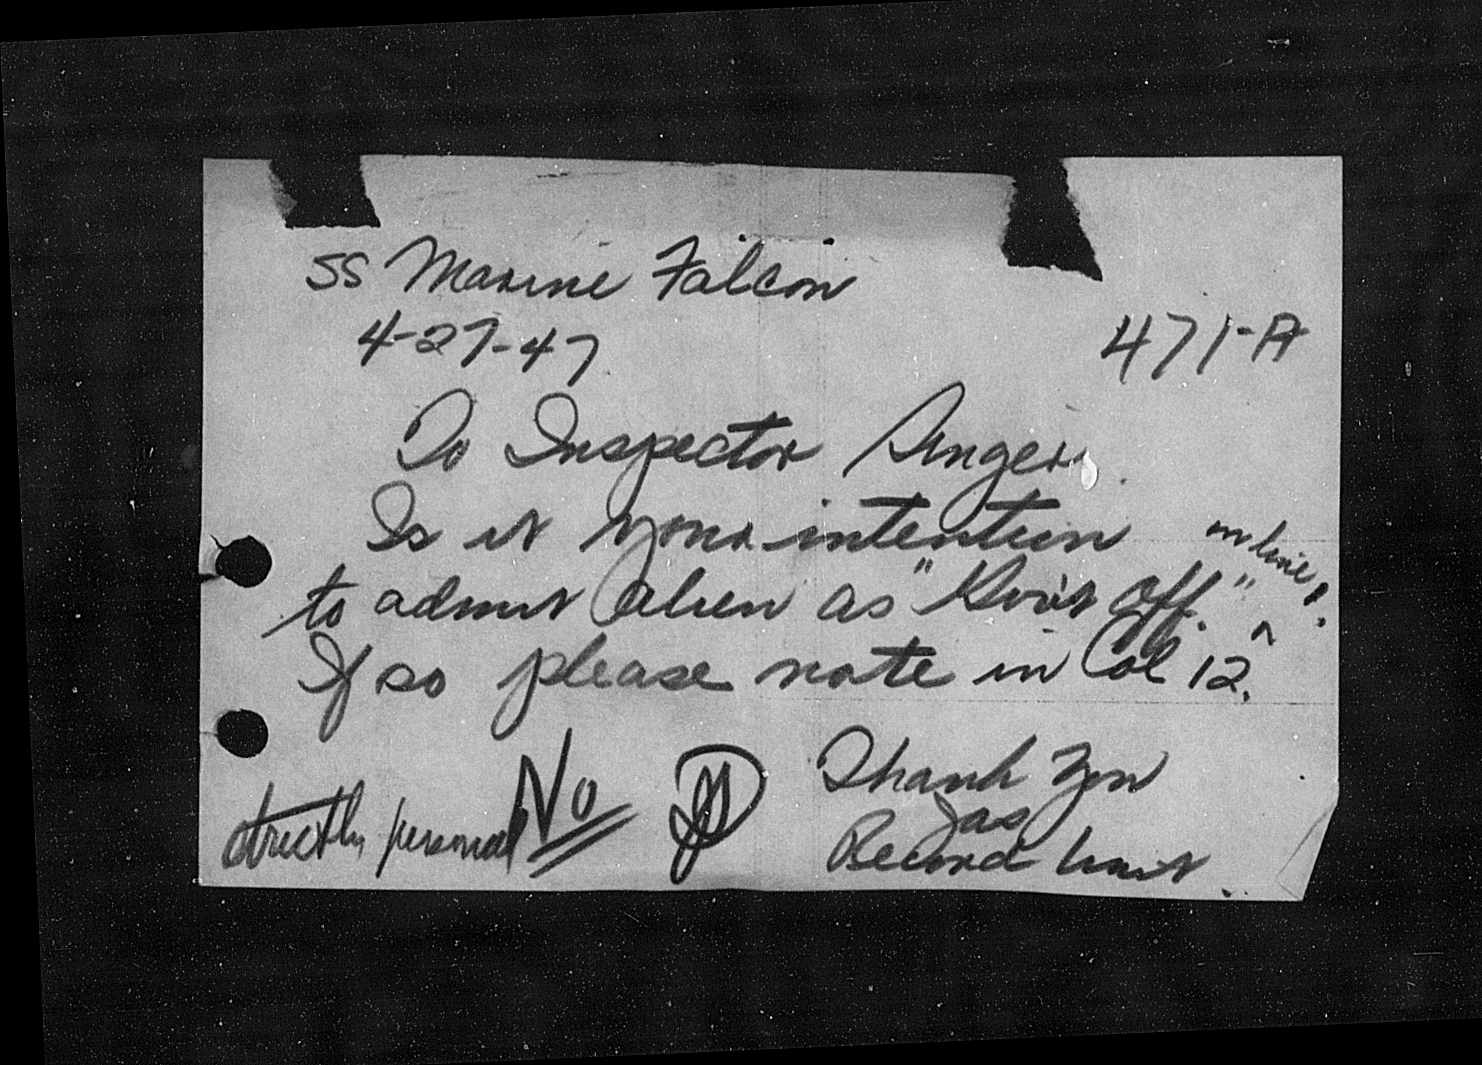 SS Marine Falcon
4-27-47
471-A
To Inspector Singer.
Is it your intention
to admit alien as "Gov't Off." on line ?.
If so please note in Col 12.
Thank You
Jas
Record Unit.
No
strictly personal